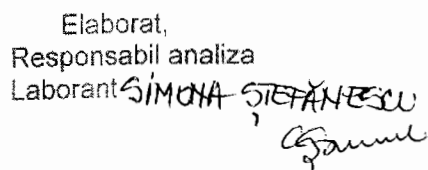 Elaborat,
Responsabil analiza
Laborant SIMONA ȘTEFĂNESCU